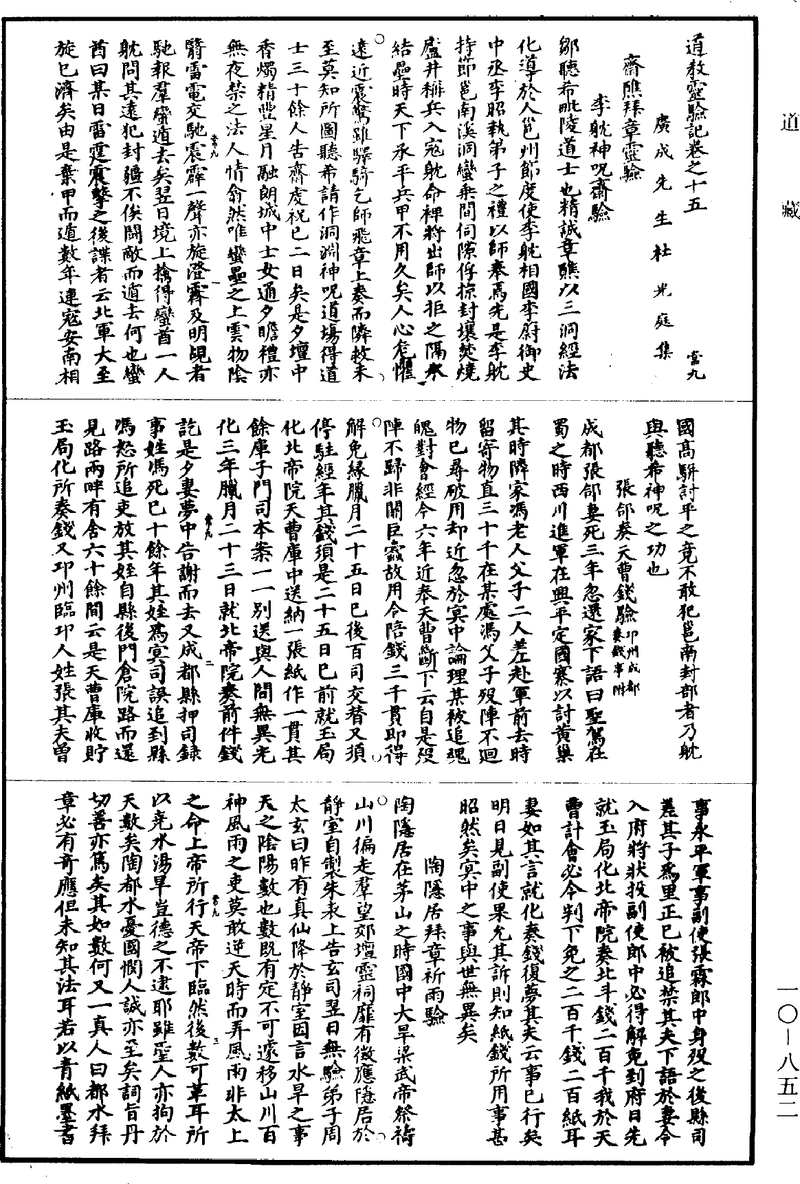 道藏
道教靈驗記卷之十五
宮九
廣成先生杜光庭集
齋醮拜章靈驗
李躭神呪齋驗
鄒聽希毗陵道士也精誠章醮以三洞經法
化導於人邕州節度使李躭相國李蔚御史
中丞李昭執弟子之禮以師奉焉先是李躭
持節邕南溪洞蠻乘間伺隙俘掠封壤焚燒
廬井擁兵入寇躭命裨將出師以拒之隔水
結壘時天下承平兵甲不用久矣人心危懼
遠近震驚雖驛騎乞師飛章上奏而隣救未
至莫知所圖聽希請作洞淵神呪道場得道
士三十餘人告齋虔祝已二日矣是夕壇中
香燭精豐星月融朗城中士女通夕瞻禮亦
無夜禁之法人情翕然唯蠻壘之上雲物陰
翳雷電交馳震霹一聲亦旋澄霽及明覘者
馳報羣蠻遁去矣翌日境上擒得蠻酋一人
躭問其遠犯封疆不俟鬬敵而遁去何也蠻
酋曰某日雷霆震擊之後諜者云北軍大至
旋已濟矣由是棄甲而遁數年連寇安南相
國高駢討平之竟不敢犯邕南封部者乃躭
與聽希神呪之功也
張郃奏天曹錢驗邛州成都奏錢事附
成都張郃妻死三年忽還家下語曰聖駕在
蜀之時西川進軍在興平定國寨以討黃巢
其時隣家馮老人父子二人差赴軍前去時
留寄物直三十千在某處馮父子歿陣不迴
物已尋破用却近忽於冥中論理某被追魂
魄對會經今六年近奉天曹斷下云自是歿
陣不歸非關巨蠹故用今陪錢三千貫即得
解免緣臘月二十五日已後百司交替又須
停駐經年其錢須是二十五日巳前就玉局
化北帝院天曹庫中送納一張紙作一貫其
餘庫子門司本案一一別送與人間無異光
化三年臘月二十三日就北帝院奏前件錢
訖是夕妻夢中告謝而去又成都縣押司錄
事姓馮死已十餘年其姪爲冥司誤追到縣
馮怒所追吏放其姪自縣後門倉院路而還
見路兩畔有舍六十餘間云是天曹庫收貯
玉局化所奏錢又邛州臨邛人姓張其夫曾
事永平軍事副使張霖郎中身歿之後縣司
差其子爲里正已被追禁其夫下語於妻令
入府將狀投副使郎中必得解免到府日先
就玉局化北帝院奏北斗錢二百千我於天
曹計會必令判下免之二百千錢二百紙耳
妻如其言就化奏錢復夢其夫云事已行矣
明日見副使果允其訴則知紙錢所用事甚
昭然矣冥中之事與世無異矣
陶隱居拜章祈雨驗
陶隱居在茅山之時國中大旱梁武帝祭禱
山川徧走羣望郊壇靈祠靡有徵應隱居於
靜室自製朱表上告玄司翌日無驗弟子周
太玄曰昨有真仙降於靜室因言水旱之事
天之陰陽數也數既有定不可遽移山川百
神風雨之吏莫敢逆天時而弄風雨非太上
之命上帝所行天帝下臨然後數可革耳所
以堯水湯旱豈德之不逮耶雖聖人亦拘於
天數矣陶都水憂國憫人誠亦至矣詞旨丹
切善亦篤矣其如數何又一真人曰都水拜
章必有奇應但未知其法耳若以青紙墨書
一〇—八五二